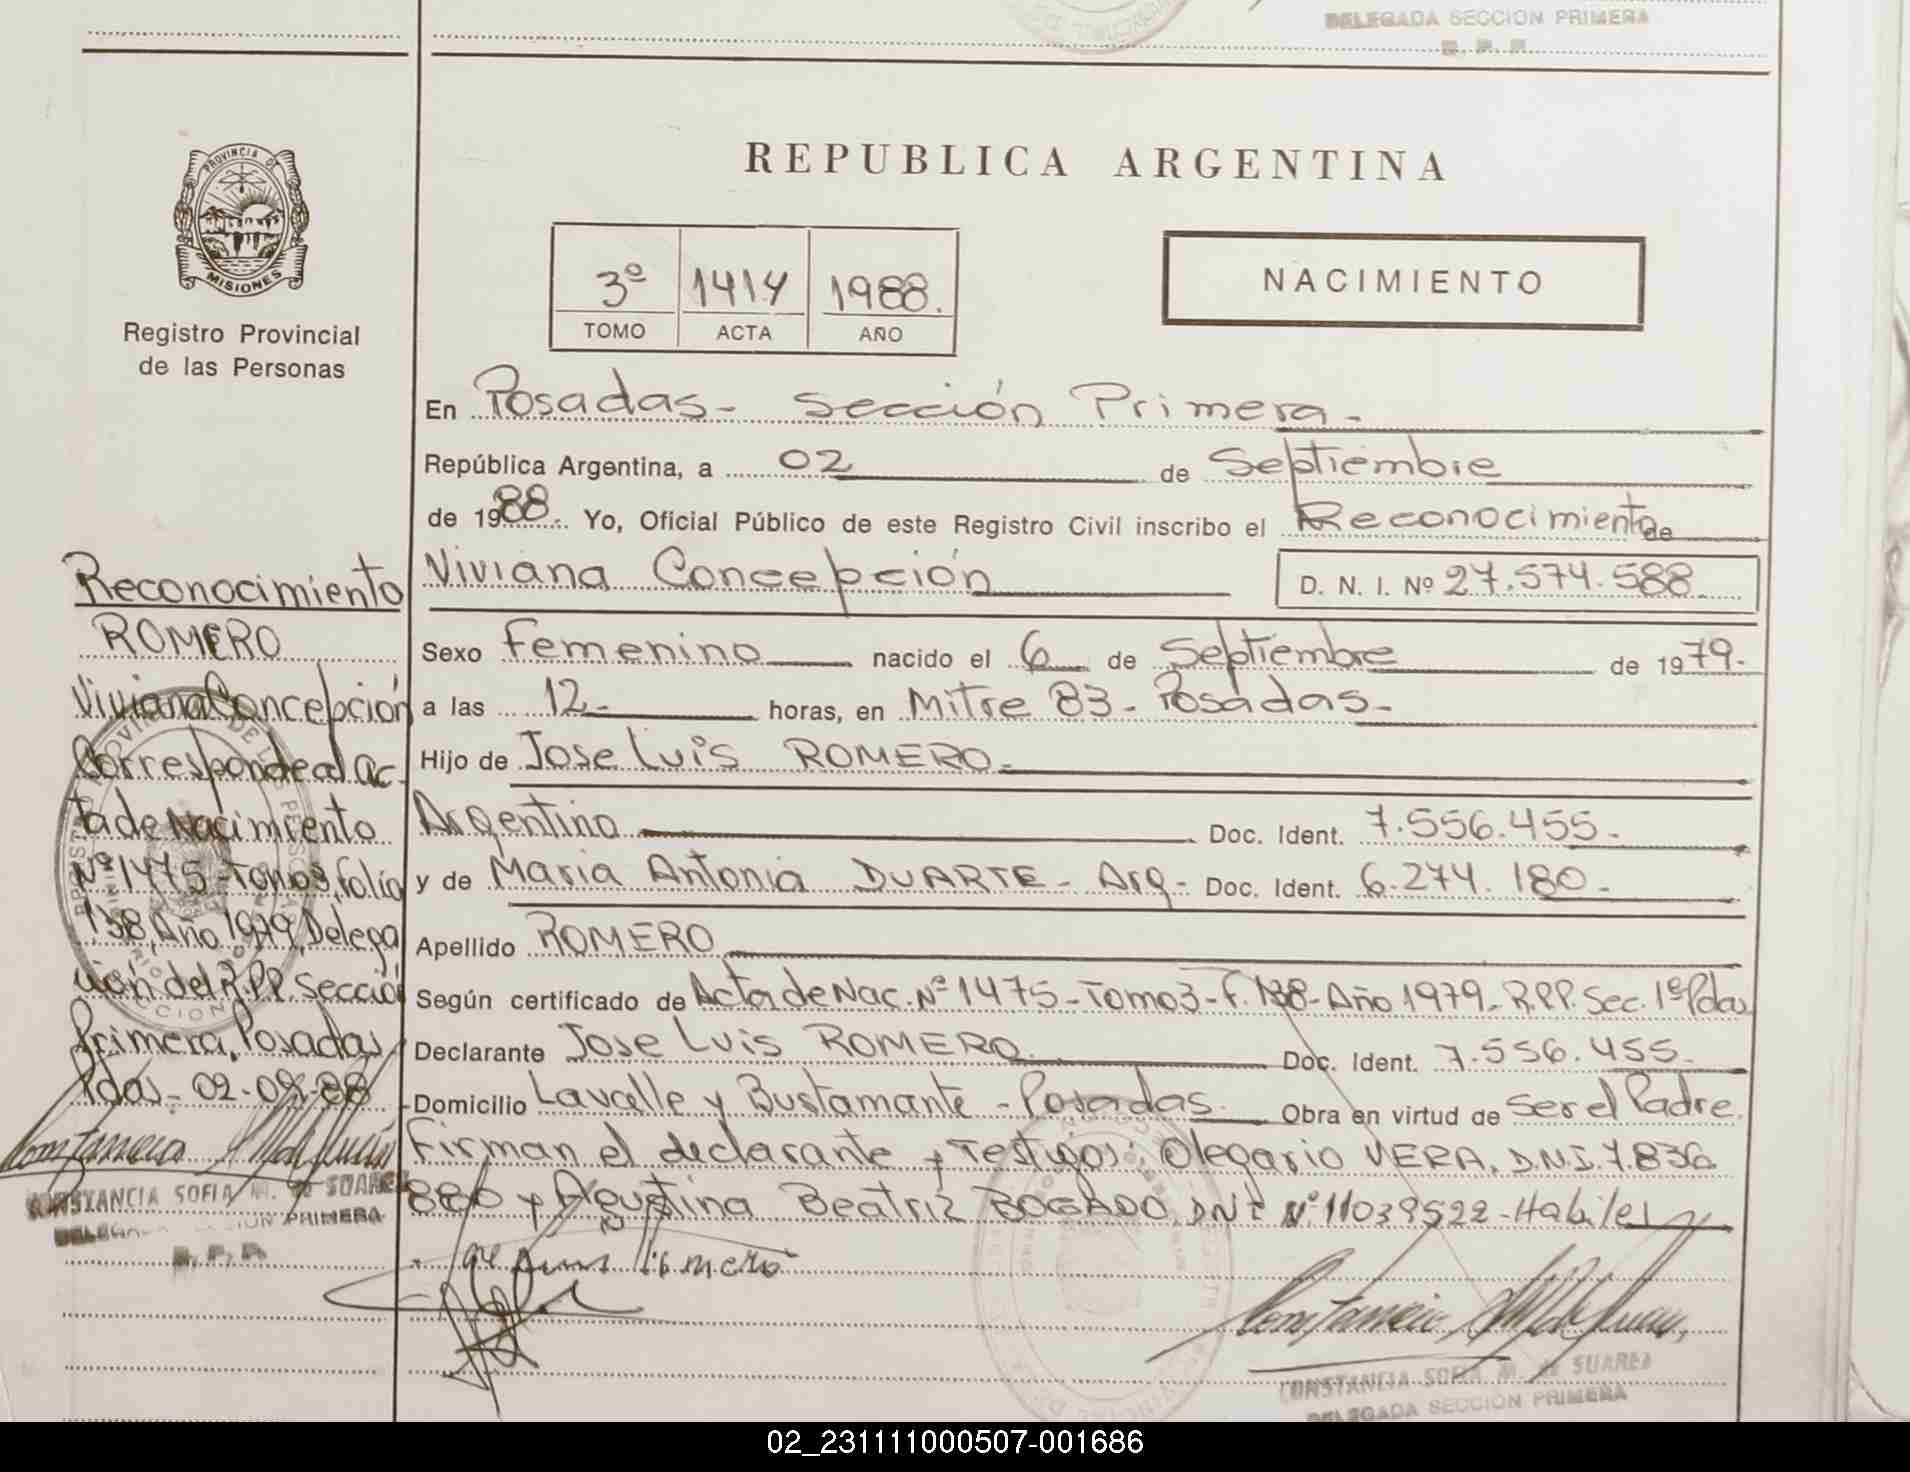 DELEGADA SECCION PRIMERA
R. P. P.
PROVINCIA DE
MISIONES
Registro Provincial
de las Personas
REPUBLICA ARGENTINA
3º 1414 1988.
TOMO ACTA AÑO
NACIMIENTO
En Posadas- Sección Primera-
República Argentina, a 02 de Septiembre
de 1988.- Yo, Oficial Público de este Registro Civil inscribo el Reconocimiento de
Viviana Concepción D. N. I. Nº 27.574.588
Sexo Femenino nacido el 6 de Septiembre de 1979.-
a las 12- horas, en Mitre 83- Posadas-
Hijo de Jose Luis ROMERO-
Argentino Doc. Ident. 7.556.455-
y de Maria Antonia DUARTE- Arg- Doc. Ident. 6.274.180-
Apellido ROMERO
Según certificado de Acta de Nac. Nº 1475-Tomo 3-F. 138-Año 1979- R.P.P. Sec. 1º Pdas
Declarante Jose Luis ROMERO Doc. Ident. 7.556.455-
Domicilio Lavalle y Bustamante - Posadas- Obra en virtud de ser el Padre.
Firman el declarante y Testigos: Olegario VERA, D.N.I. 7.836
880 y Agustina Beatriz BOGADO, DNI Nº 11039522-Habiles
Reconocimiento
ROMERO
Viviana Concepción
Corresponde al Ac-
ta de Nacimiento
Nº 1475-Tomo 3, folio
138, Año 1979, Delega
ción del R.P.P. Sección
Primera, Posadas
Pdas- 02-09-88
CONSTANCIA SOFIA M. de SUAREZ
DELEGADA SECCION PRIMERA
R. P. P.
Jose Luis Romero
CONSTANCIA SOFIA M. de SUAREZ
DELEGADA SECCION PRIMERA
02_231111000507-001686